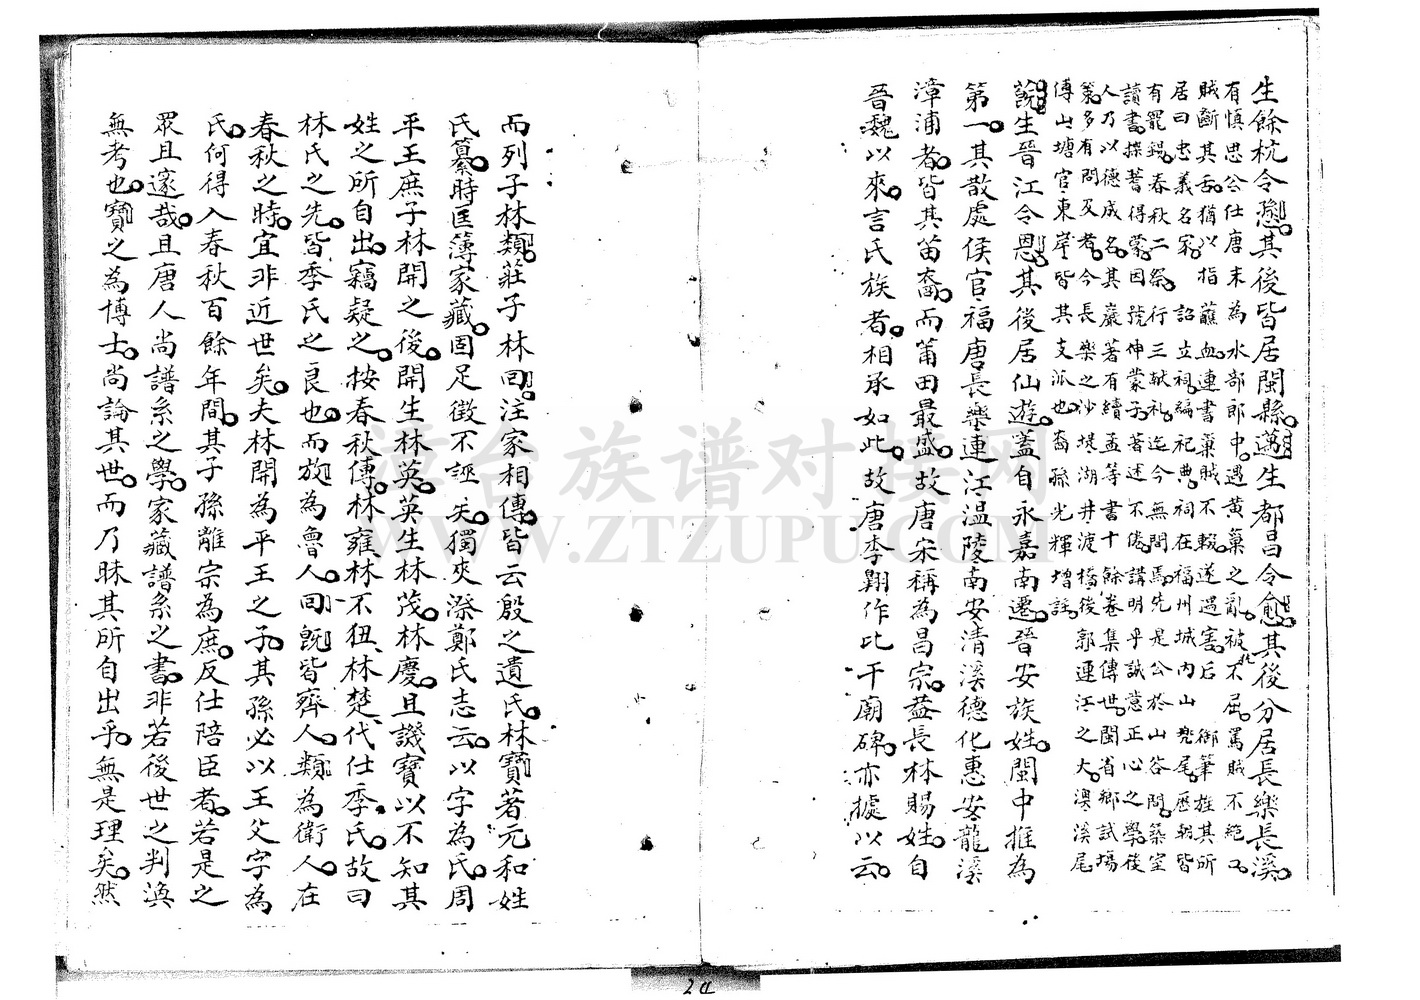 生餘杭令懸其後皆居閩縣邁生都昌令愈其後分居長樂長溪
有慎思公仕唐末為水部郎中遇黃巢之亂被不屈罵賊不絕口
賊斷其舌猶以指蘸血連書巢賊不輟遂遇害后御筆旌其所
居曰忠義名家詔立祠編祀典祠在福州城內山兜尾歷朝皆
有寵錫春秋二祭行三献礼迄今無間焉先是公於山谷間築室
讀書探蓍得蒙因號伸蒙子著述不倦講明乎誠意正心之學後
人乃以德成名其嚴著有續孟等書十餘卷集傳世閩省鄉試場
策多有問及者今長樂之沙堤湖井渡橋後郭連江之大澳溪尾
傅山塘官東岸皆其支派也裔孫光輝增誌
說生晉江令恩其後居仙遊蓋自永嘉南遷晉安族姓閩中推為
第一其散處侯官福唐長樂連江温陵南安清溪德化惠安龍溪
漳浦者皆其苗裔而莆田最盛故唐宋稱為昌宗蓋長林賜姓自
晉魏以來言氏族者相承如此故唐李翺作比干廟碑亦據以云
而列子林類莊子林回注家相傳皆云殷之遺氏林寶著元和姓
氏纂時匡簿家藏固足徵不誣矣獨夾漈鄭氏志云以字為氏周
平王庶子林開之後開生林英英生林茂林慶且譏寶以不知其
姓之所自出竊疑之按春秋傳林雍林不狃林楚代仕季氏故曰
林氏之先皆季氏之良也而放為魯人回既皆齊人類為衛人在
春秋之時宜非近世矣夫林開為平王之子其孫必以王父字為
氏何得入春秋百餘年間其子孫離宗為庶反仕陪臣者若是之
眾且邃哉且唐人尚譜系之學家藏譜系之書非若後世之判渙
無考也寶之為博士尚論其世而乃昧其所自出乎無是理矣然
24
漳台族谱对接网
WWW.ZTZUPU.COM